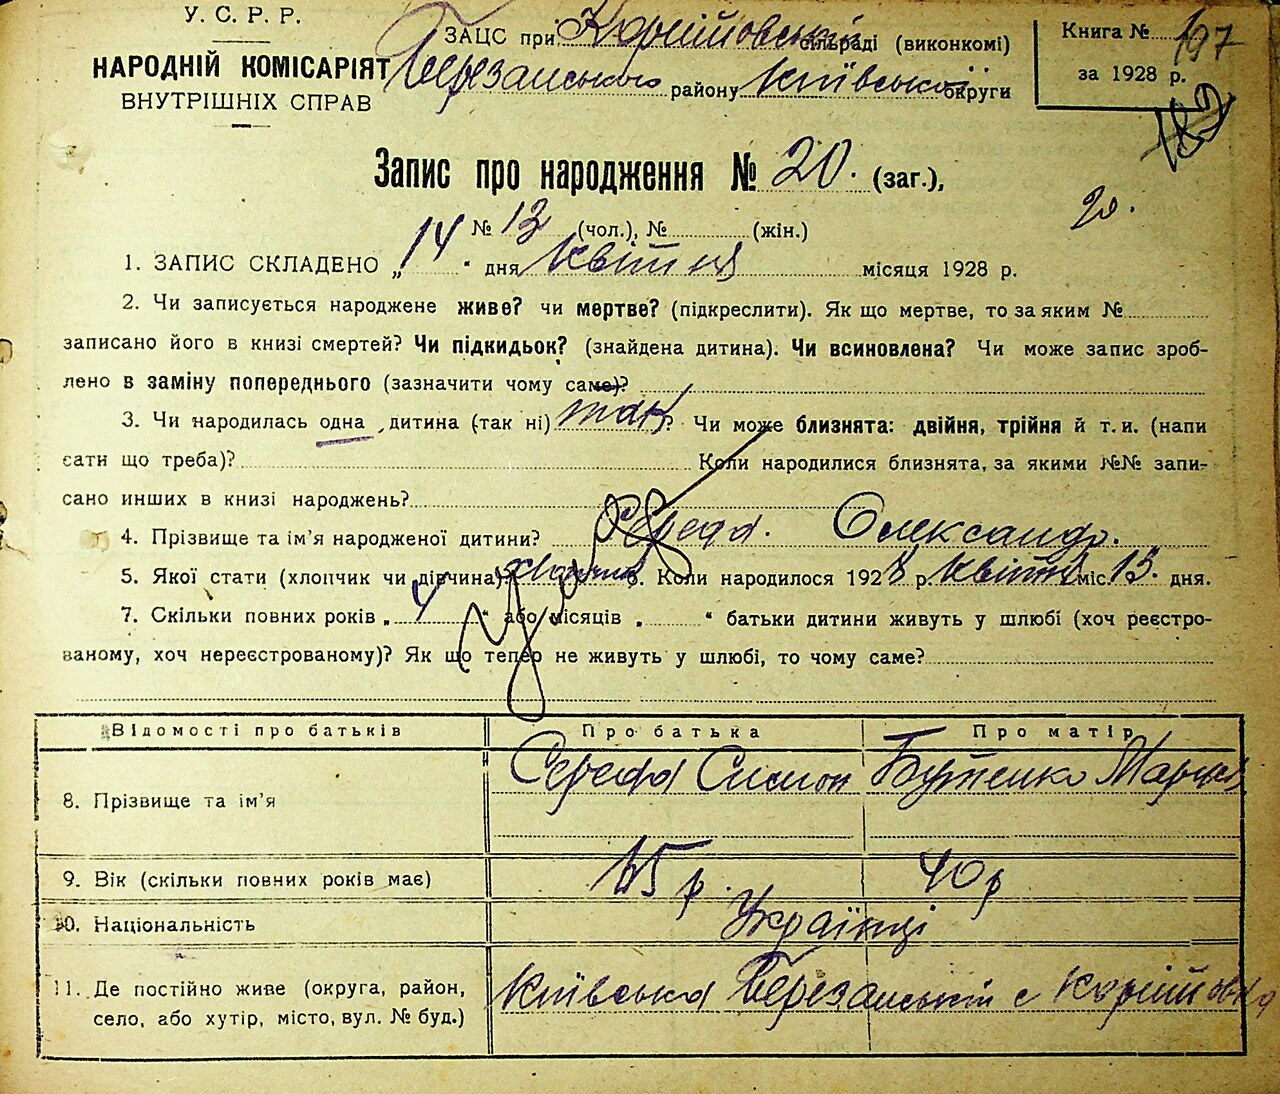 У. С. Р. Р.
НАРОДНІЙ КОМІСАРІЯТ
ВНУТРІШНІХ СПРАВ
ЗАЦС при Корнійовській сільраді (виконкомі)
Березанського району Київської округи
Книга № 197
за 1928 р.
182
Запис про народження № 20. (заг.),
20.
№ 13 (чол.), № (жін.)
1. ЗАПИС СКЛАДЕНО „14“ дня квітня місяця 1928 р.
2. Чи записується народжене живе? чи мертве? (підкреслити). Як що мертве, то за яким №
записано його в книзі смертей? Чи підкидьок? (знайдена дитина). Чи всиновлена? Чи може запис зроб-
лено в заміну попереднього (зазначити чому саме)?
3. Чи народилась одна дитина (так ні) так? Чи може близнята: двійня, трійня й т. и. (напи
сати що треба)? Коли народилися близнята, за якими №№ запи-
сано инших в книзі народжень?
4. Прізвище та ім'я народженої дитини? Середа. Олександр.
5. Якої стати (хлопчик чи дівчина)? хлопчик 6. Коли народилося 1928 р. квітня міс. 13. дня.
7. Скільки повних років „4“ або місяців „ “ батьки дитини живуть у шлюбі (хоч реєстро-
ваному, хоч нереєстрованому)? Як що тепер не живуть у шлюбі, то чому саме?
Відомості про батьків Про батька Про матір
8. Прізвище та ім'я Середа Симон Бутенко Марія
9. Вік (скільки повних років має) 45 р. 40 р
10. Національність Українці
11. Де постійно живе (округа, район, Київська Березанський с Корнійовка
село, або хутір, місто, вул. № буд.)